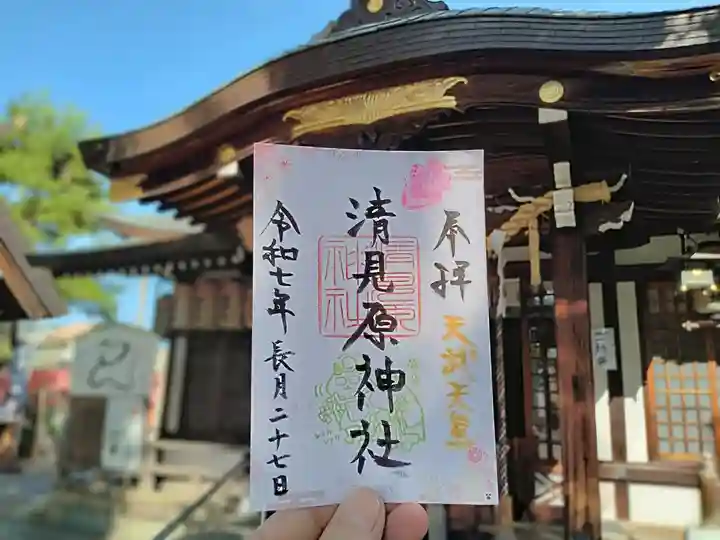 奉拝
天武天皇
清見原神社
令和七年 長月二十七日
巳